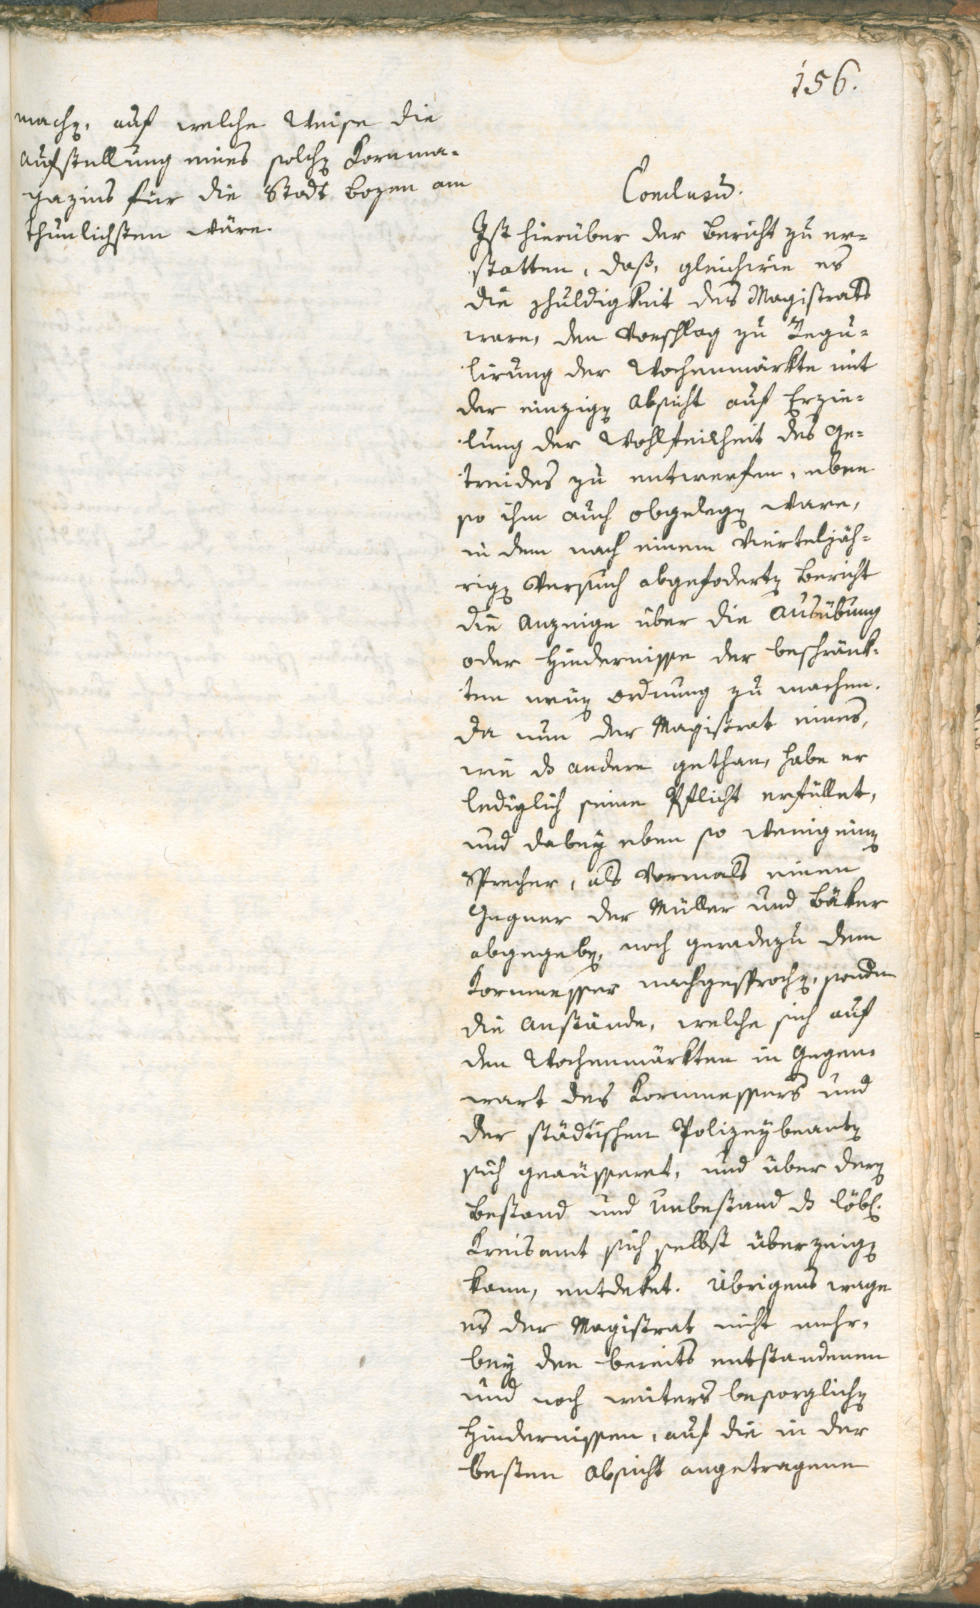 156.
machen, auf welche Weise die
Aufstellung eines solchen Kornma-
gazins für die Stadt Bozen am
thunlichsten wäre.
Conclusum.
Ist hierüber der Bericht zu er-
statten, daß, gleichwie es
die Schuldigkeit des Magistrats
ware, den Vorschlag zu Regu-
lirung der Wochenmärkte mit
der einzigen Absicht auf Erzie-
lung der Wohlfeilheit des Ge-
treides zu entwerfen, eben
so ihm auch obgelegen ware,
in dem nach einem Vierteljäh-
rigen Versuch abgefoderten Bericht
die Anzeige über die Ausübung
oder Hindernisse der beschränk-
ten neuen Ordnung zu machen.
Da nun der Magistrat eines,
wie das andere gethan, habe er
lediglich seine Pflicht erfüllet,
und dabey eben so wenig einen
Sprecher, als vormals einen
Gegner der Müller und Bäker
abgegeben, noch geradezu dem
Kornmesser nachgesprochen, sondern
die Anstände, welche sich auf
den Wochenmärkten in Gegen-
wart des Kornmessers und
der städtischen Polizeybeamten
sich geäusseret, und über deren
Bestand und Unbestand das löbl.
Kreisamt sich selbst überzeigen
kann, entdeket. Übrigens wage
es der Magistrat nicht mehr,
bey den bereits entstandenen
und noch weiters besorglichen
Hindernissen, auf die in der
besten Absicht angetragene